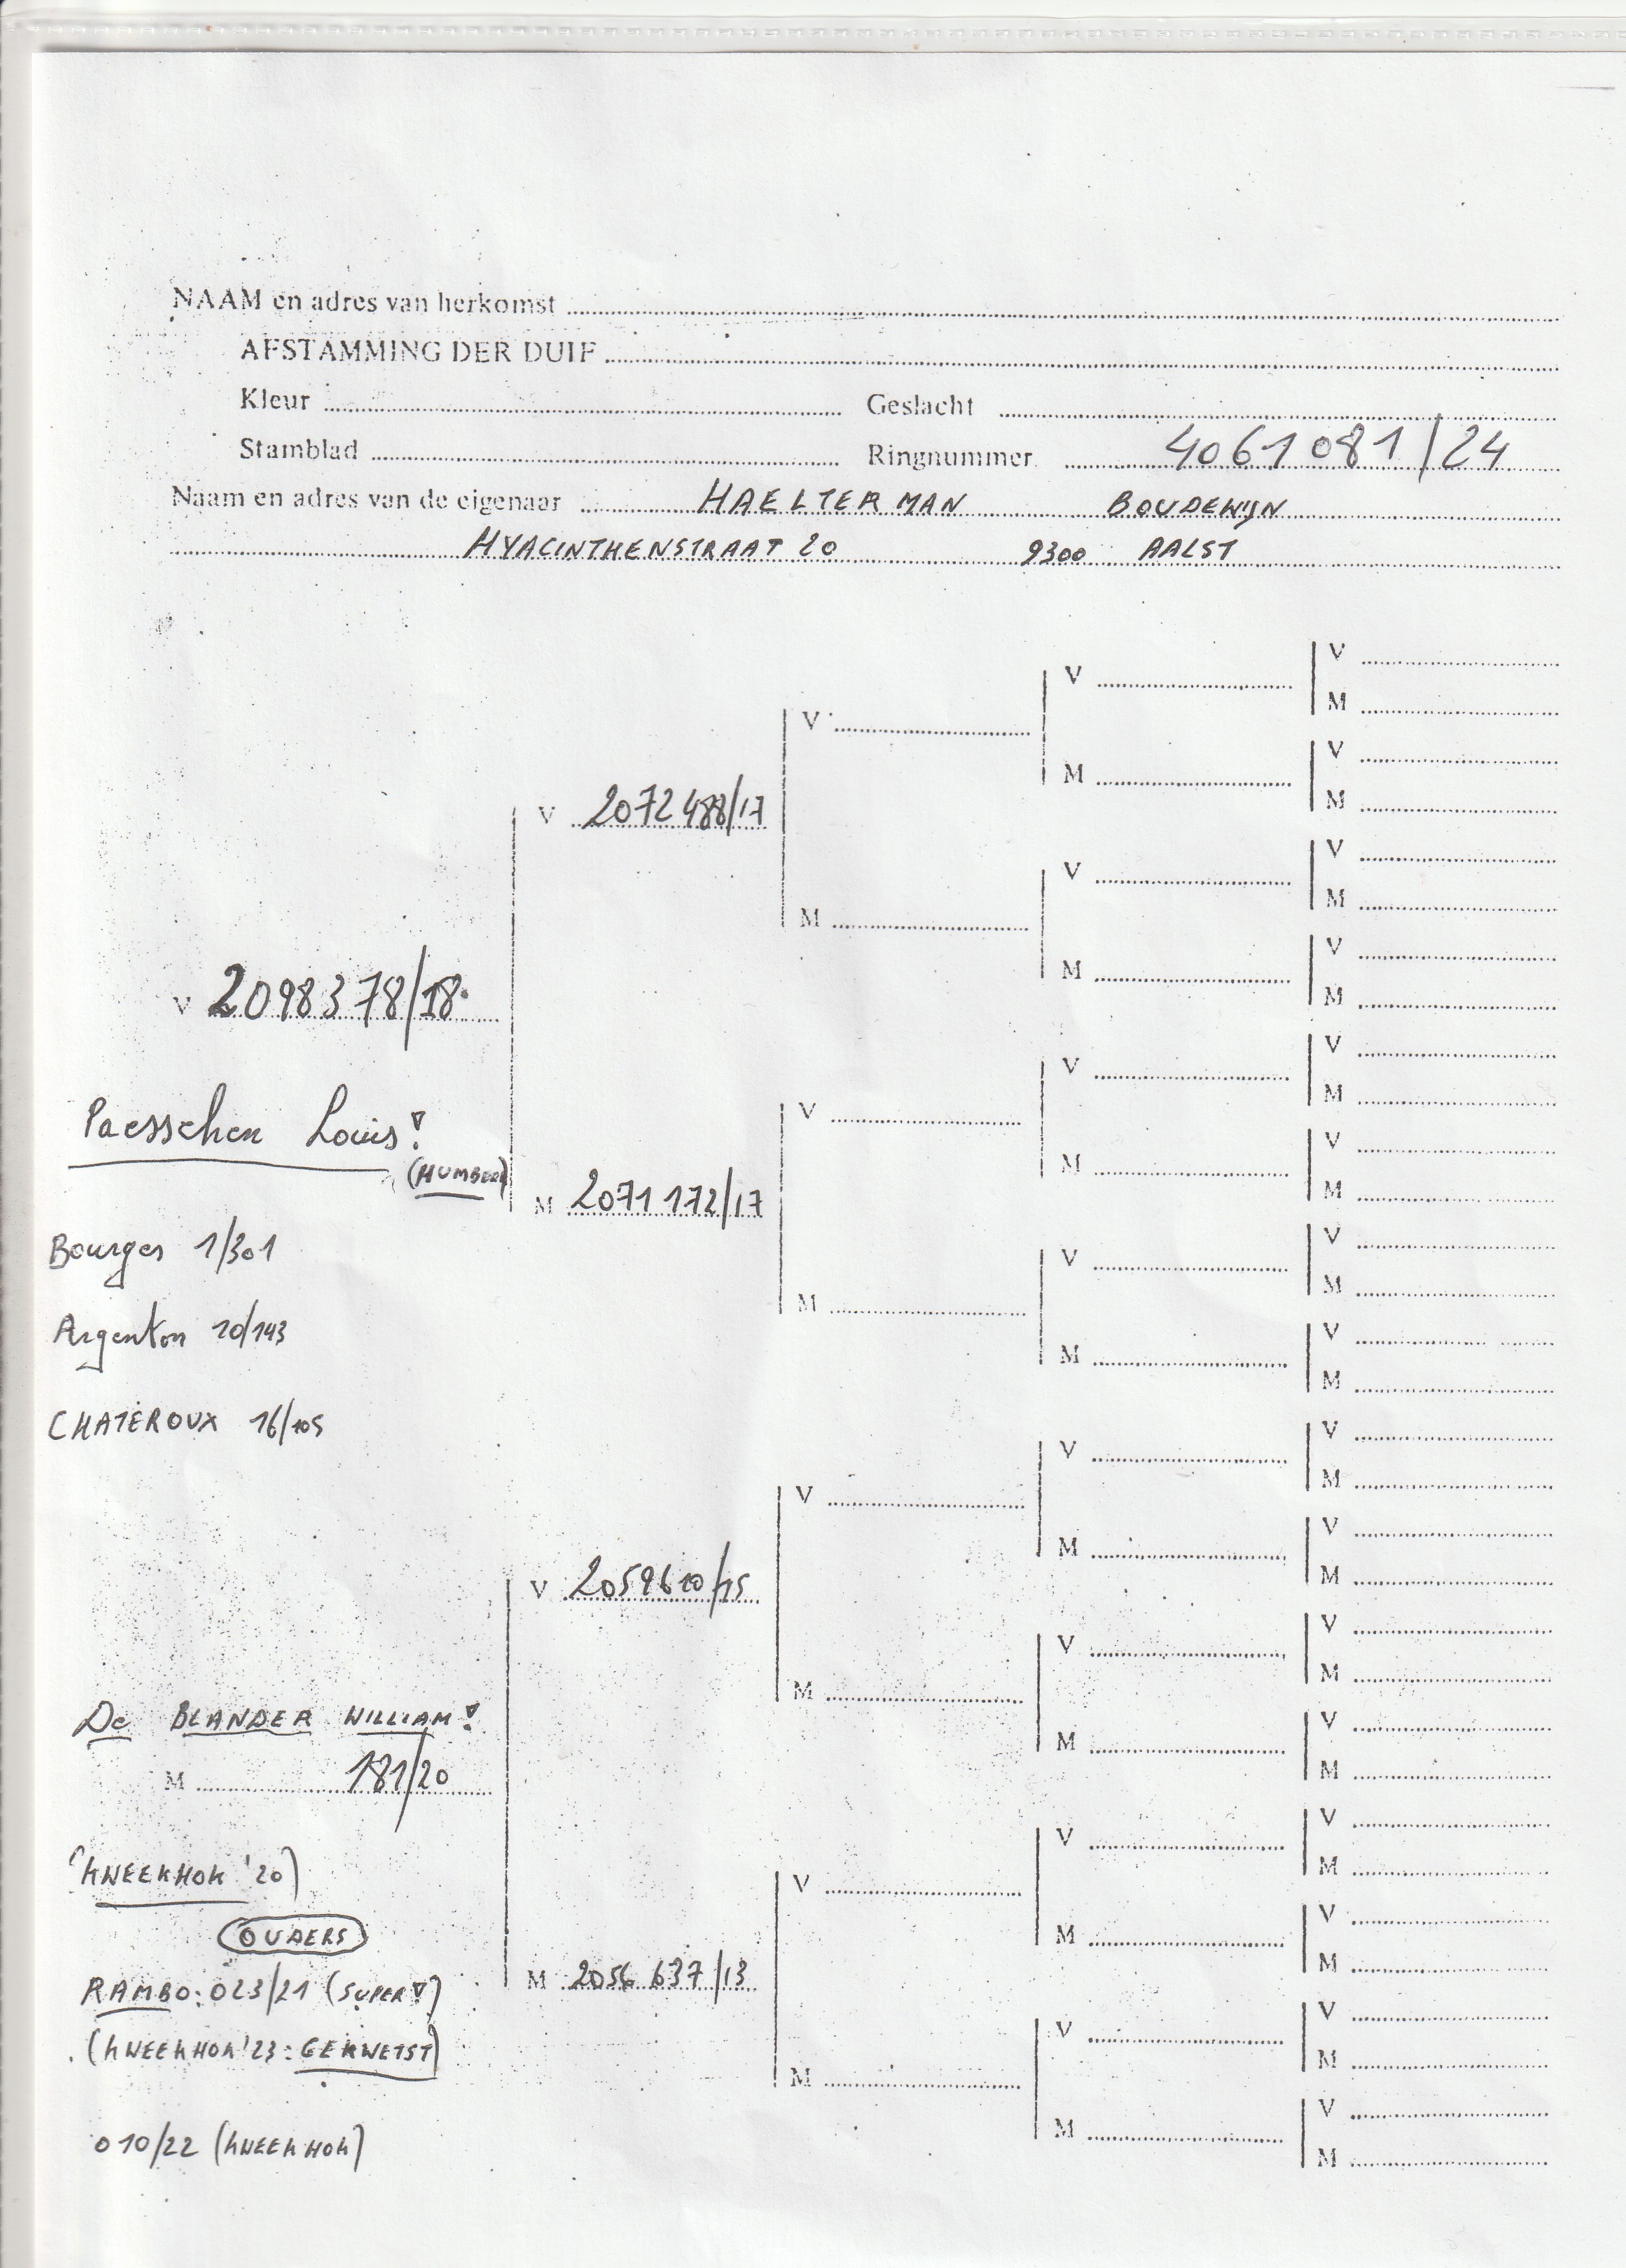 NAAM en adres van herkomst
AFSTAMMING DER DUIF
Kleur Geslacht
Stamblad Ringnummer 4061081/24
Naam en adres van de eigenaar HAELTERMAN BOUDEWIJN
HYACINTHENSTRAAT 20 9300 AALST
V 2098378/18
Paesschen Louis!
(HUMBEEK)
Bourges 1/301
Argenton 10/143
CHATEROUX 16/105
De BLANDER WILLIAM!
M 181/20
(KWEEKHOK '20)
OUDERS
RAMBO: 023/21 (SUPER!)
(KWEEKHOK '23: GEKWETST)
010/22 (KWEEKHOK)
V 2072488/17
M 2071172/17
V 2059610/15
M 2056637/13
V
M
V
M
V
M
V
M
V
M
V
M
V
M
V
M
V
M
V
M
V
M
V
M
V
M
V
M
V
M
V
M
V
M
V
M
V
M
V
M
V
M
V
M
V
M
V
M
V
M
V
M
V
M
V
M